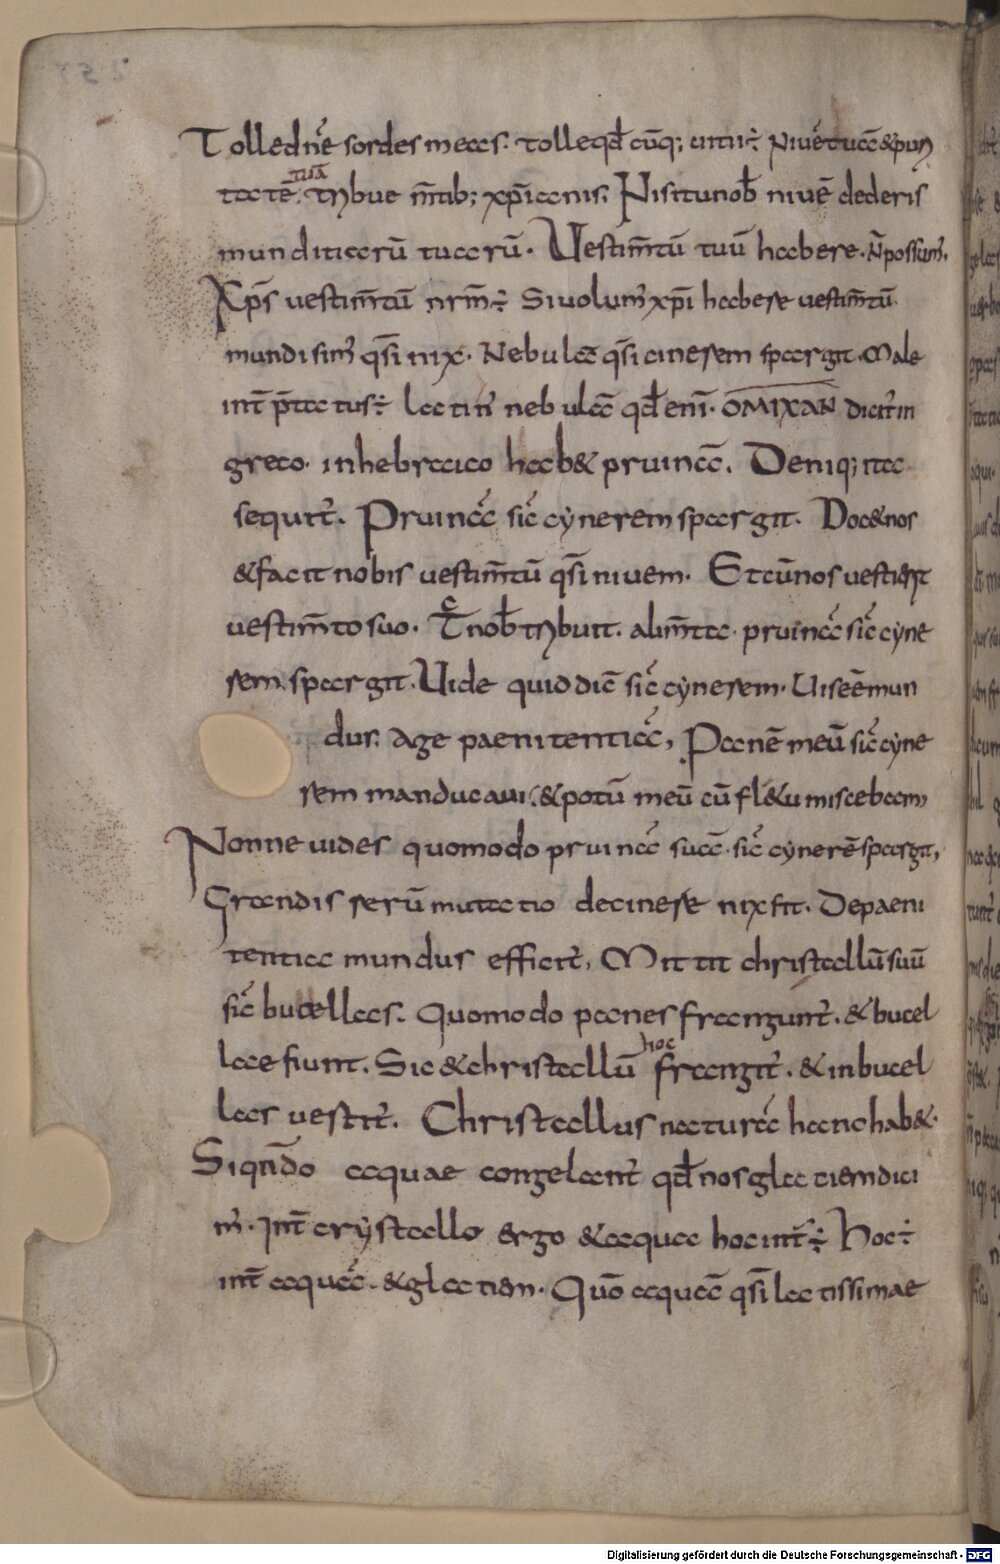 Tolle dn̄e sordes meas. tolle qd̄ cūq; uitii ÷ Niuē tuā & puri
tatē tuā tribue m̄tib; xp̄ianis. Nisi tu nob̄ niuē dederis
munditiarū tuarū. Vestim̄tū tuū habere. n̄ possum᾽.
Xp̄s vestim̄tū nrm̄ ÷ Si volum᾽ xp̄i habere vestim̄tū
mundisim᾽ qsi nix. Nebulā qsi cinerem spargit. Male
int̄ p̄tatus ÷ latin᾽ nebulā qd̄ eni. OMIXΛN dicit᾽ in
greco. in hebraico hab& pruinā. Deniq; ita
sequit᾽. Pruinā sic̄ cynerem spargit. Doc& nos
& facit nobis vestim̄tū qsi nivem. Et cū nos vestierit
vestim̄to suo. T̄c nob̄ tribuit. alim̄ta. pruinā sic̄ cyne
rem spargit. Uide quid dic̄ sic̄ cynerem. Uis eē mun
dus. Age paenitentiā, Panē meū sic̄ cyne
rem manducavi. & potū meū cū fl&u miscebam,
Nonne vides quomodo pruinā suā. sic̄ cynerē spargit,
Grandis rerū mutatio de cinere nix fit. De paeni
tentia mundus efficit᾽, Mittit christallū suū
sic̄ bucellas. Quomodo panes frangunt᾽. & bucel
lae fiunt. Sic & christallū hoc frangit᾽. & in bucel
las vestit᾽. Christallus naturā hanc hab&.
Si qn̄do aquae congelant᾽ qd̄ nos glaciem dici
m᾽. Int̄ crystallo ergo & aqua hoc int̄ ÷ Hoc ÷
int̄ aquā. & glaciem. Quō aquā qsi latissimae
Digitalisierung gefördert durch die Deutsche Forschungsgemeinschaft - DFG